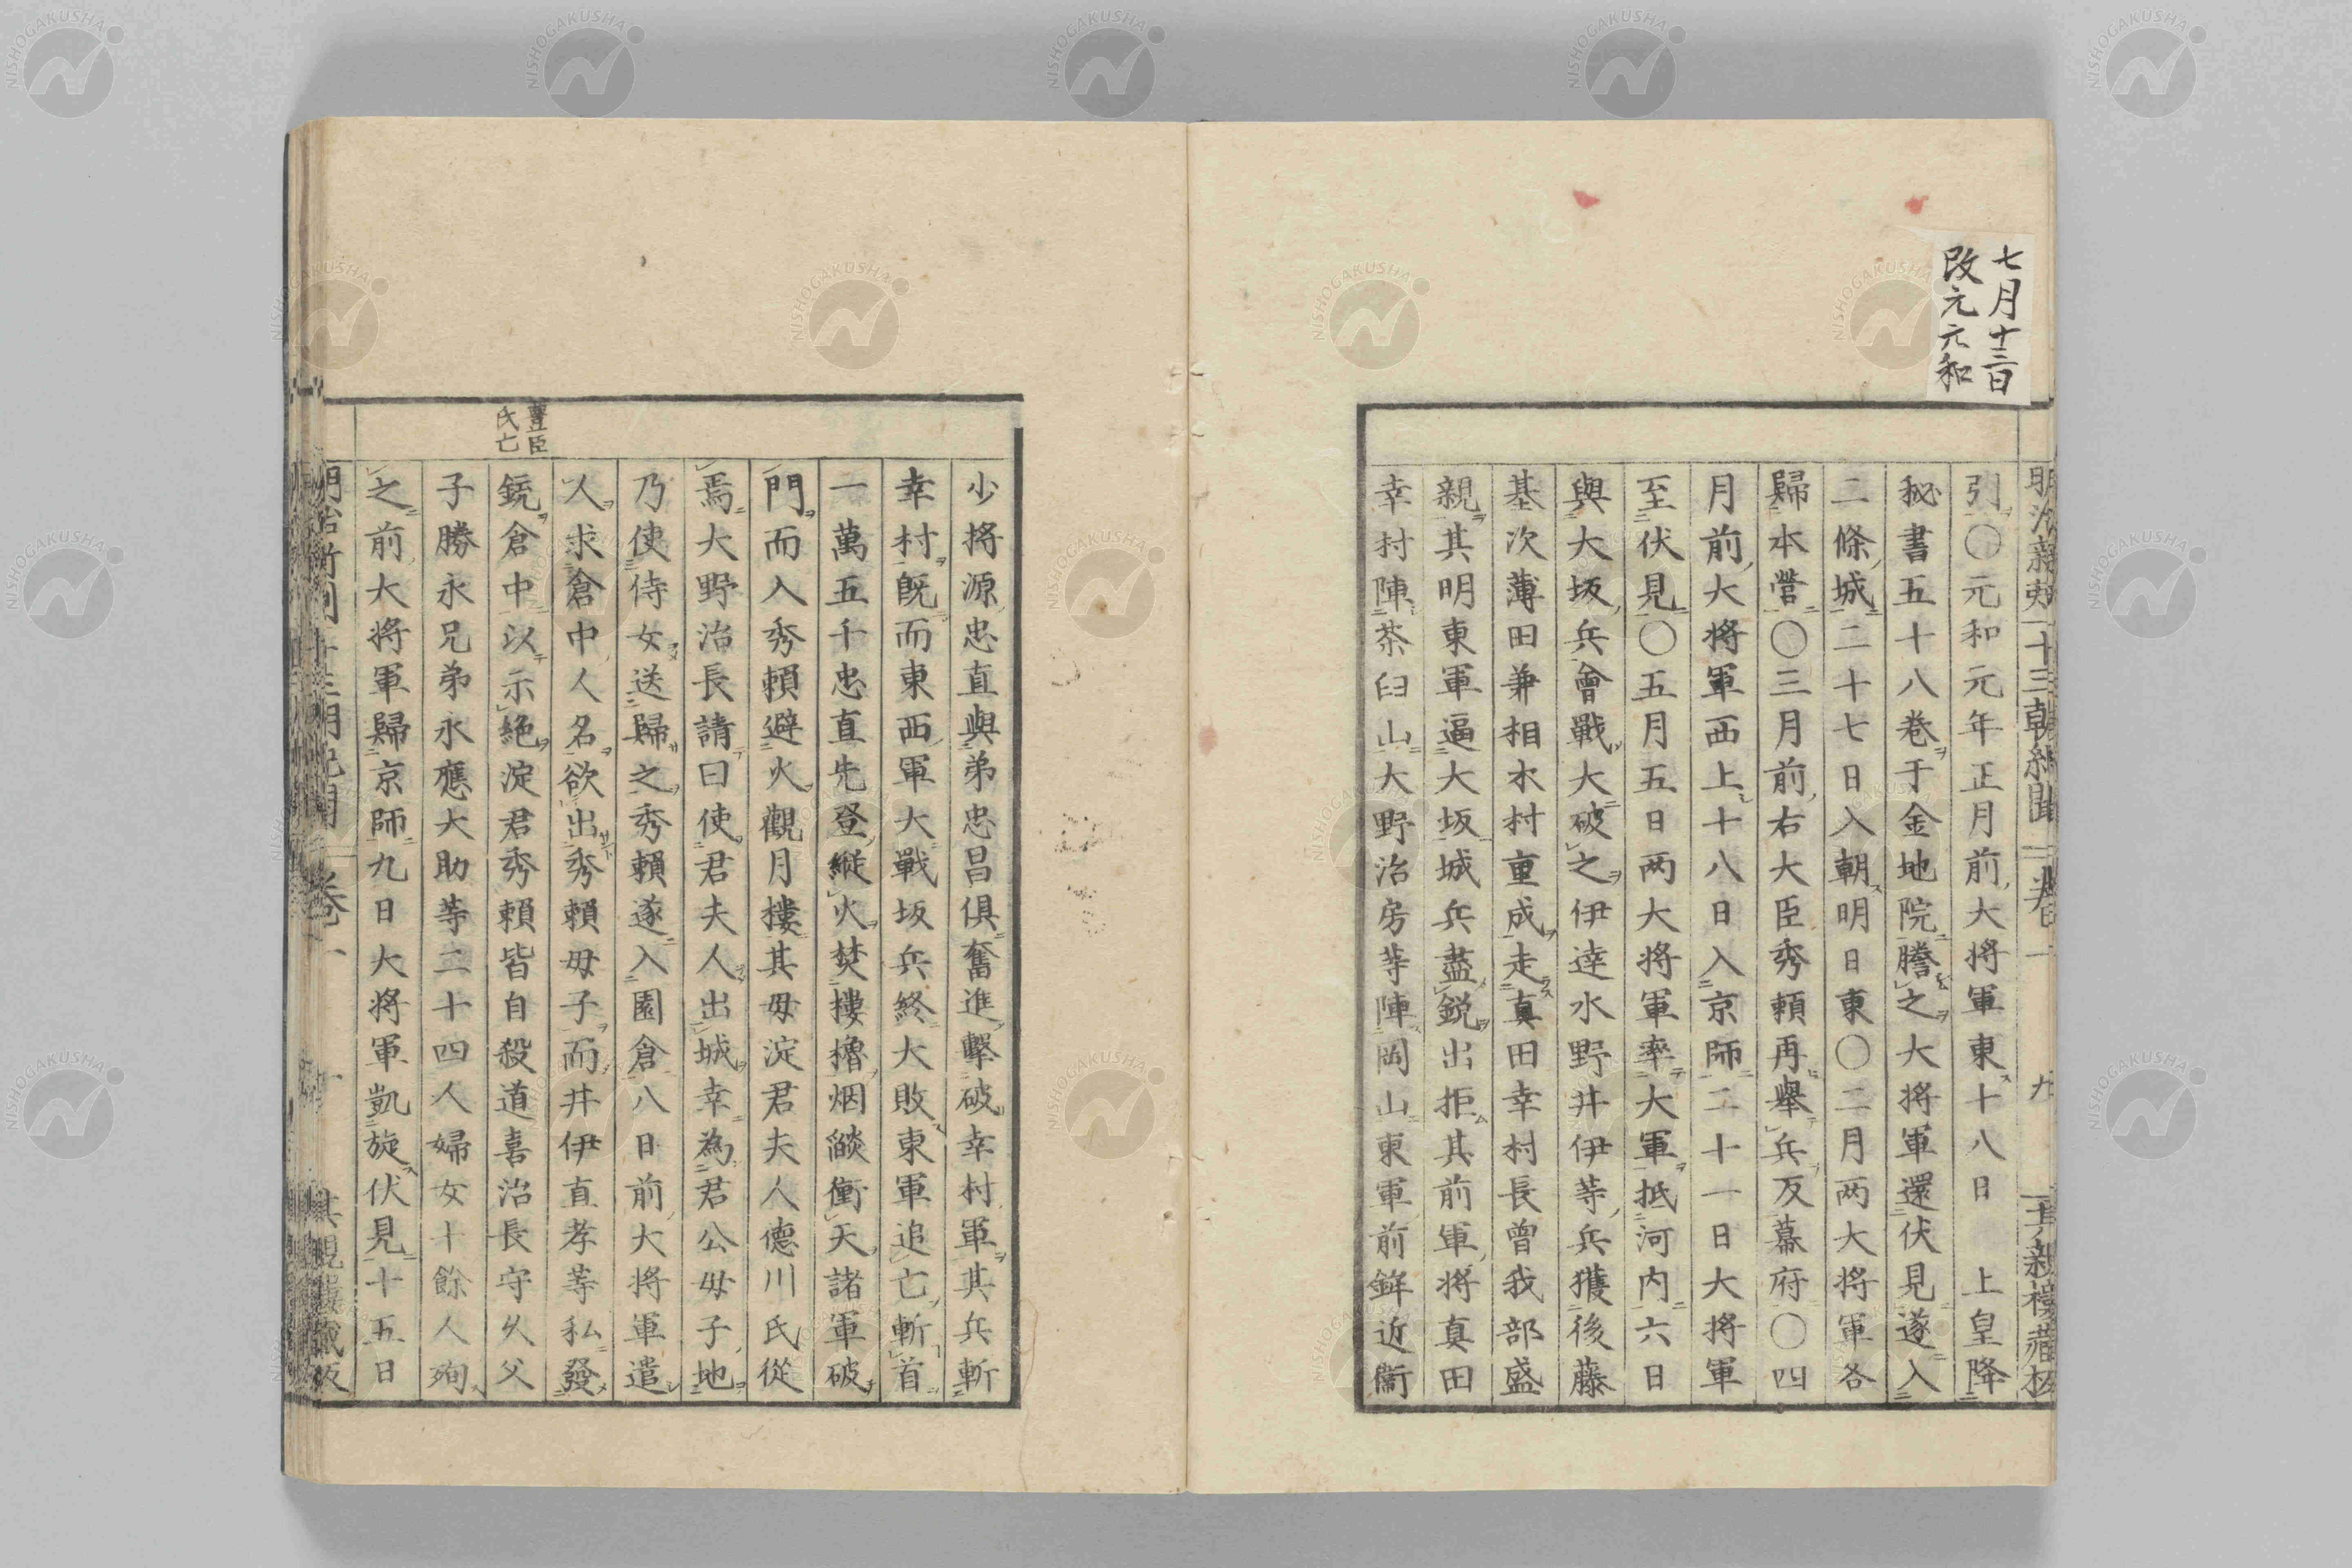 七月十三日
改元元和
引〇元和元年正月前大将軍東十八日　上皇降
秘書五十八巻于金地院謄之大将軍還伏見遂入
二條城二十七日入朝明日東〇二月两大将軍各
歸本營〇三月前右大臣秀頼再舉兵反幕府〇四
月前大将軍西上十八日入京師二十一日大将軍
至伏見〇五月五日两大将軍率大軍抵河内六日
與大坂兵會戰大破之伊達水野井伊等兵獲後藤
基次薄田兼相木村重成走真田幸村長曾我部盛
親其明東軍逼大坂城兵盡鋭出拒其前軍将真田
幸村陣茶臼山大野治房等陣岡山東軍前鉾近衞
少将源忠直與弟忠昌俱奮進擊破幸村軍其兵斬
幸村既而東西軍大戰坂兵終大敗東軍追亡斬首
一萬五千忠直先登縦火焚樓櫓烟燄衝天諸軍破
門而入秀頼避火觀月樓其母淀君夫人德川氏從
焉大野治長請曰使君夫人出城幸為君公母子地
乃使侍女送歸之秀頼遂入園倉八日前大将軍遣
人求倉中人名欲出秀頼母子而井伊直孝等私發
豐臣
氏亡
銃倉中以示絶淀君秀頼皆自殺道喜治長守久父
子勝永兄弟永應大助等二十四人婦女十餘人殉
之前大将軍歸京師九日大将軍凱旋伏見十五日